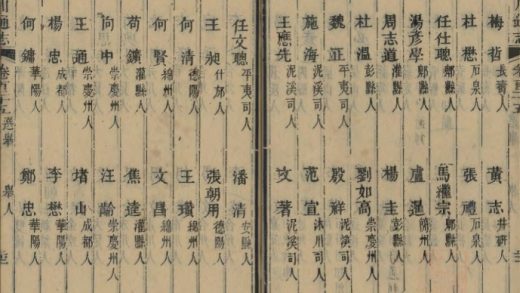 梅哲 長壽人 黃志 井研人
杜懋 石泉人 張禮 石泉人
任仕聰 郫縣人 馬繼宗 郫縣人
湯彥學 郫縣人 盧暹 簡州人
周志道 灌縣人 楊圭 彭縣人
杜溫 彭縣人 劉如高 崇慶州人
魏正 平夷司人 殷祥 泥溪司人
施海 泥溪司人 范宣 沐川司人
王應先 泥溪司人 文著 泥溪司人
任文聰 平夷司人 潘清 安縣人
王昶 什邡人 張朝用 德陽人
何清 德陽人 王瓚 綿州人
何賢 綿州人 文昌 綿州人
苟鑛 灌縣人 焦逵 灌縣人
向中 崇慶州人 汪齡 崇慶州人
王通 崇慶州人 堵山 成都人
楊忠 成都人 李懋 華陽人
何鏞 華陽人 鄭忠 華陽人
川通志 選舉 舉人